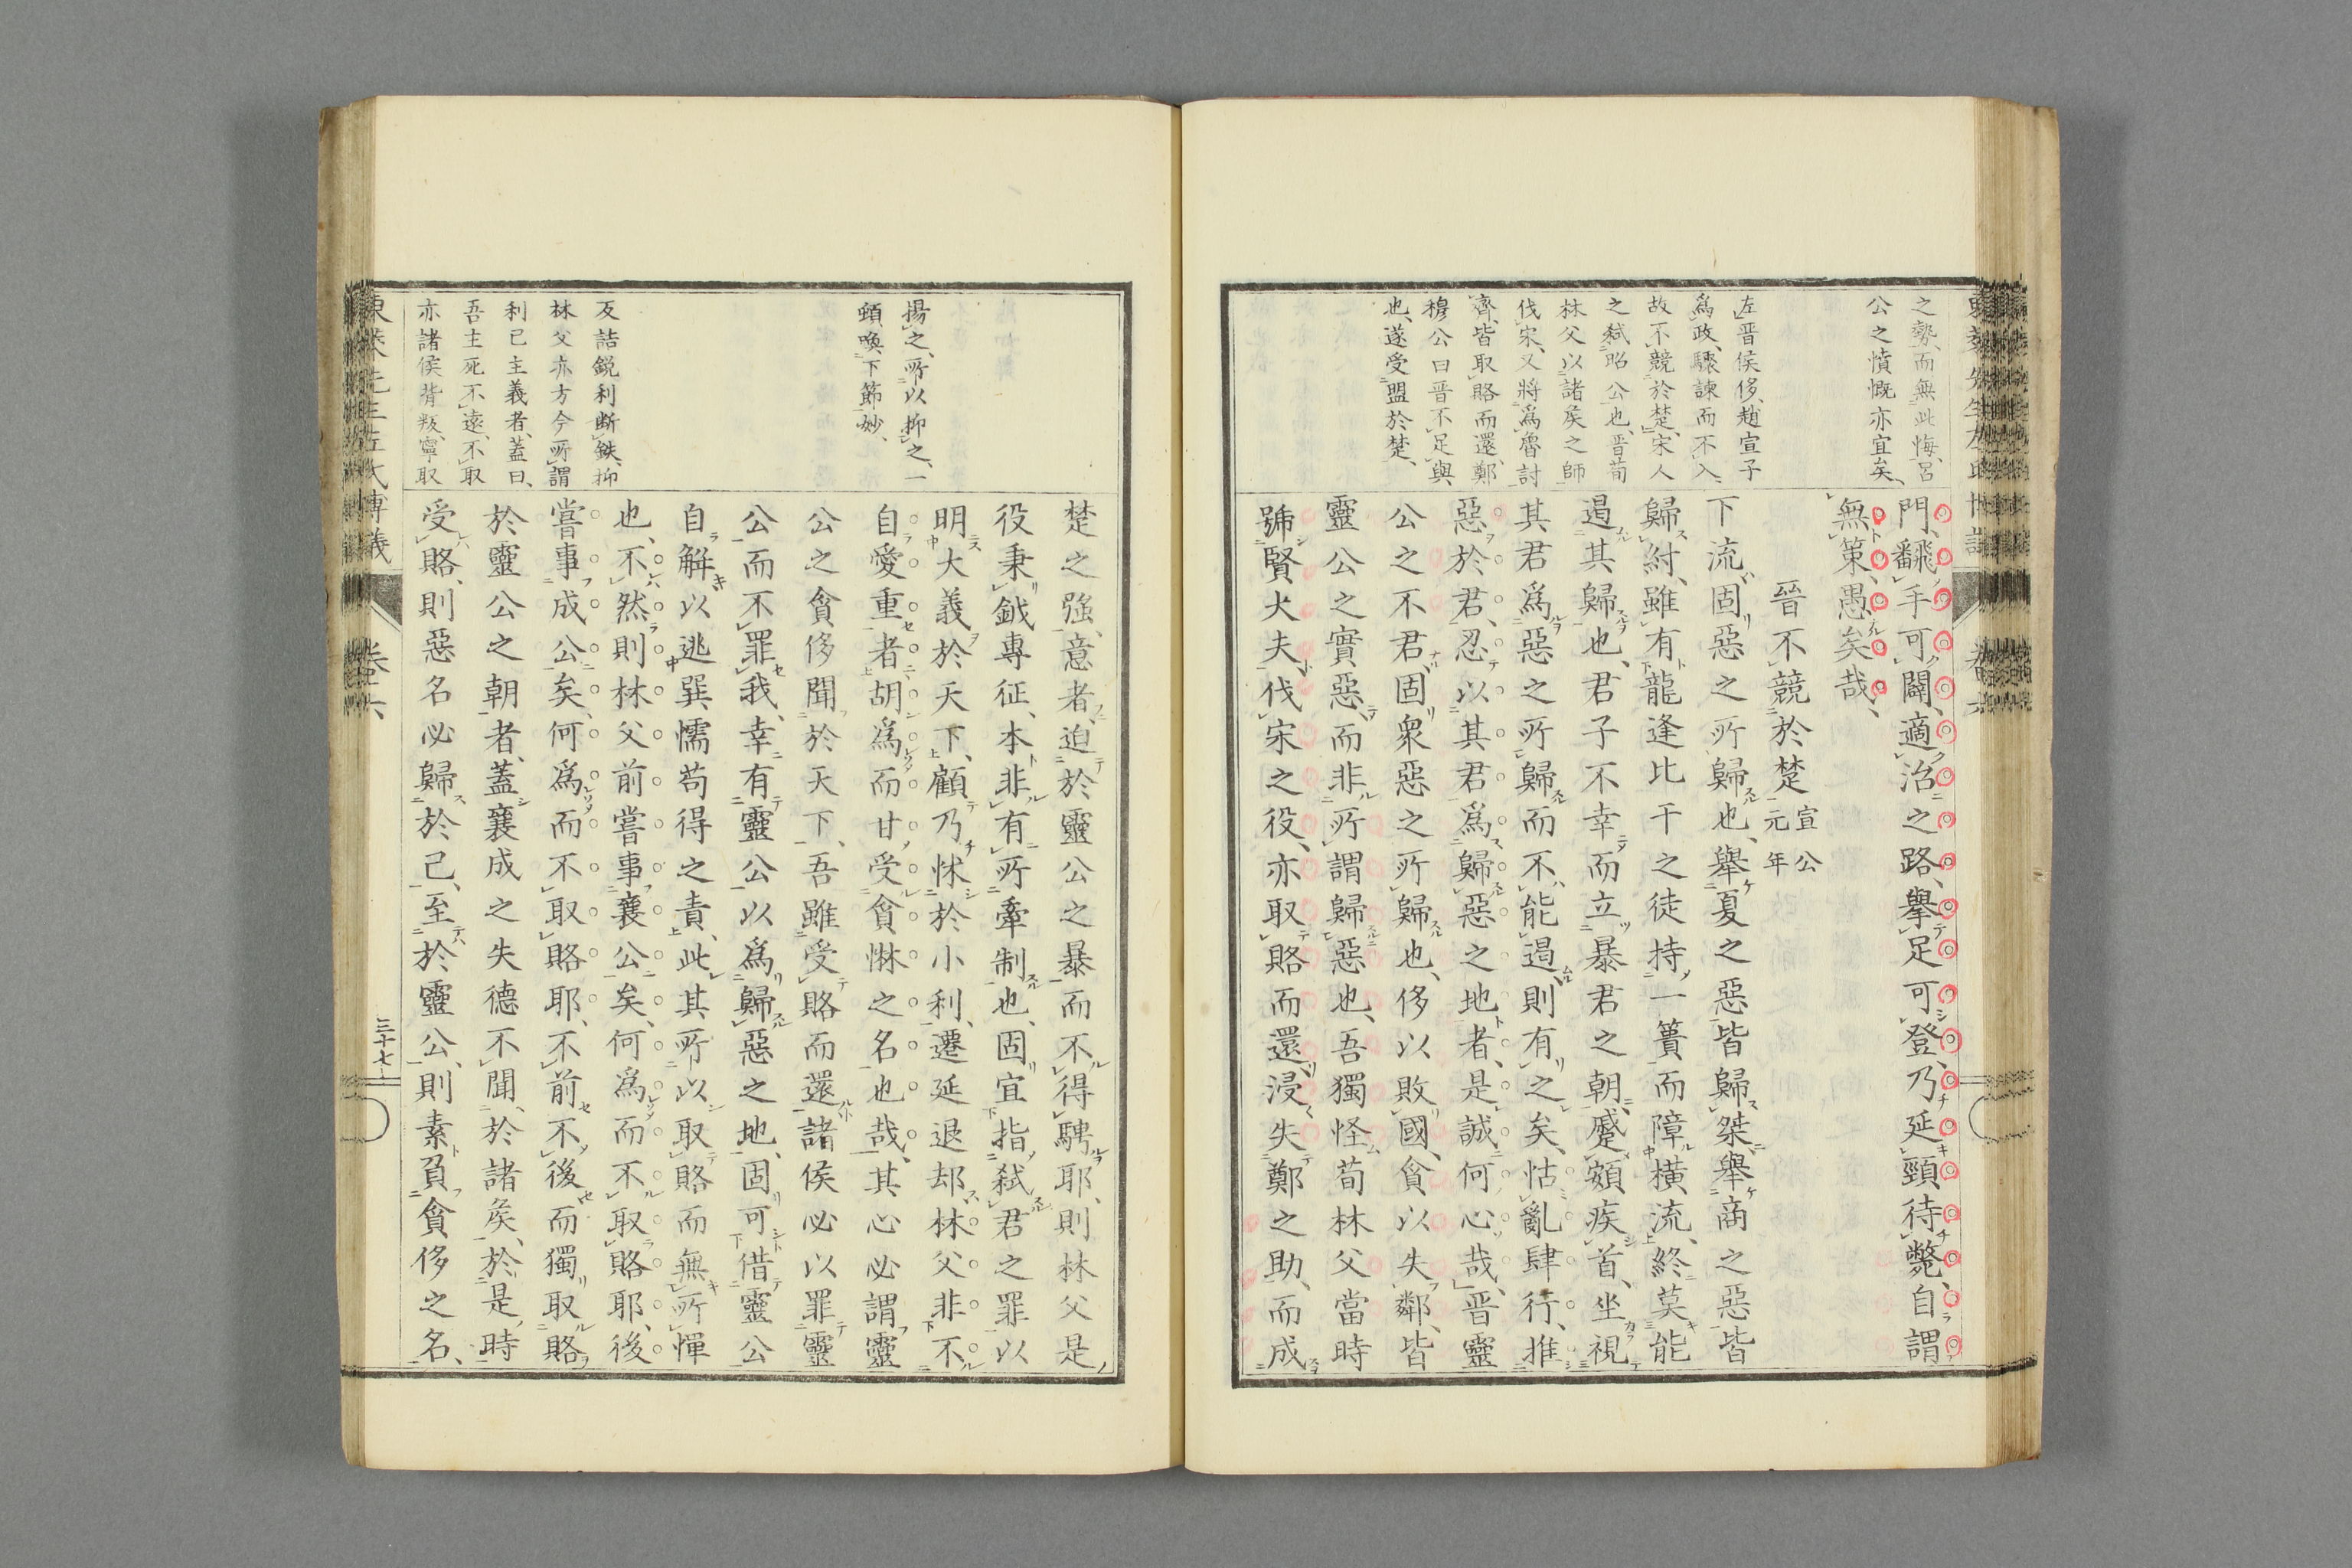 之勢、而無此悔、呂
公之憤慨亦宜矣、
左晋侯侈、趙宣子
爲政、驟諫而不入、
故不競於楚、宋人
之弑昭公也、晋荀
林父以諸矦之師
伐宋、又將爲魯討
齊、皆取賂而還、鄭
穆公曰晋不足與
也、遂受盟於楚、
門、飜手可闢、適治之路、擧足可登、乃延頸待斃、自謂
無策、愚矣哉、
晉不競於楚 宣公元年
下流固惡之所歸也、舉夏之惡皆歸桀、舉商之惡皆
歸紂、雖有龍逢比干之徒持一簣而障橫流、終莫能
遏其歸也、君子不幸而立暴君之朝、蹙頞疾首、坐視
其君爲惡之所歸而不能遏則有之矣、怙亂肆行、推
惡於君、忍以其君爲歸惡之地者、是誠何心哉、晋靈
公之不君、固衆惡之所歸也、侈以敗國、貪以失鄰、皆
靈公之實惡、而非所謂歸惡也、吾獨怪荀林父當時
號賢大夫、伐宋之役、亦取賂而還、浸失鄭之助、而成
揚之、所以抑之、一
頸喚下節妙、
反詰鋭利断鉄、抑
林父亦方今所謂
利己主義者、蓋曰、
吾主死不遠、不取
亦諸侯背叛、寧取
楚之强、意者、迫於靈公之暴而不得騁耶、則林父是
役秉鉞專征、本非有所牽制也、固宜指弑君之罪以
明大義於天下、顧乃怵於小利、遷延退却、林父非不
自愛重者、胡爲而甘受貪惏之名也哉、其心必謂靈
公之貪侈聞於天下、吾雖受賂而還諸侯必以罪靈
公而不罪我、幸有靈公以爲歸惡之地、固可借靈公
自解以逃巽懦苟得之責、此其所以取賂而無所憚
也、不然則林父前嘗事襄公矣、何爲而不取賂耶、後
嘗事成公矣、何爲而不取賂耶、不前不後而獨取賂
於靈公之朝者、蓋襄成之失德不聞於諸矦、於是時
受賂、則惡名必歸於己、至於靈公、則素負貪侈之名、
卷六
三十七